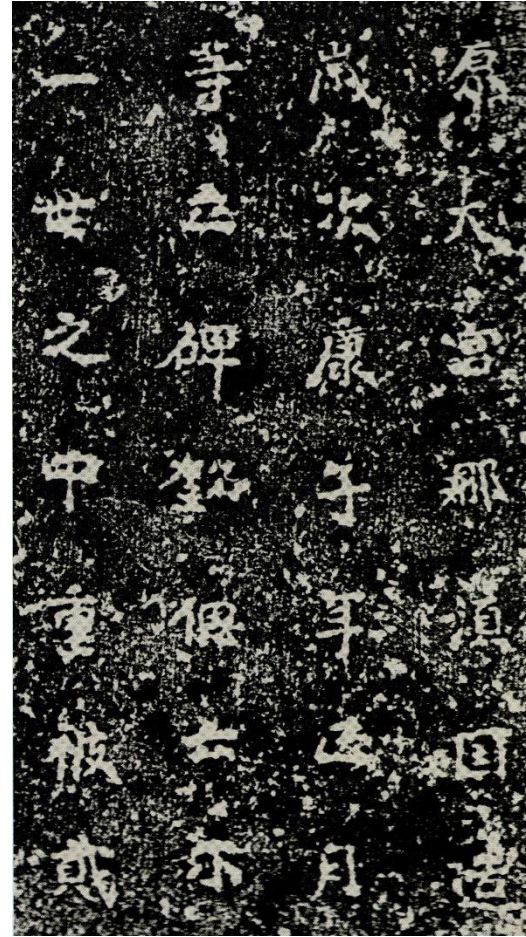 原大宮那湏国造
歲次康子年正月
等立碑銘偲云尓
一世之中重被貳